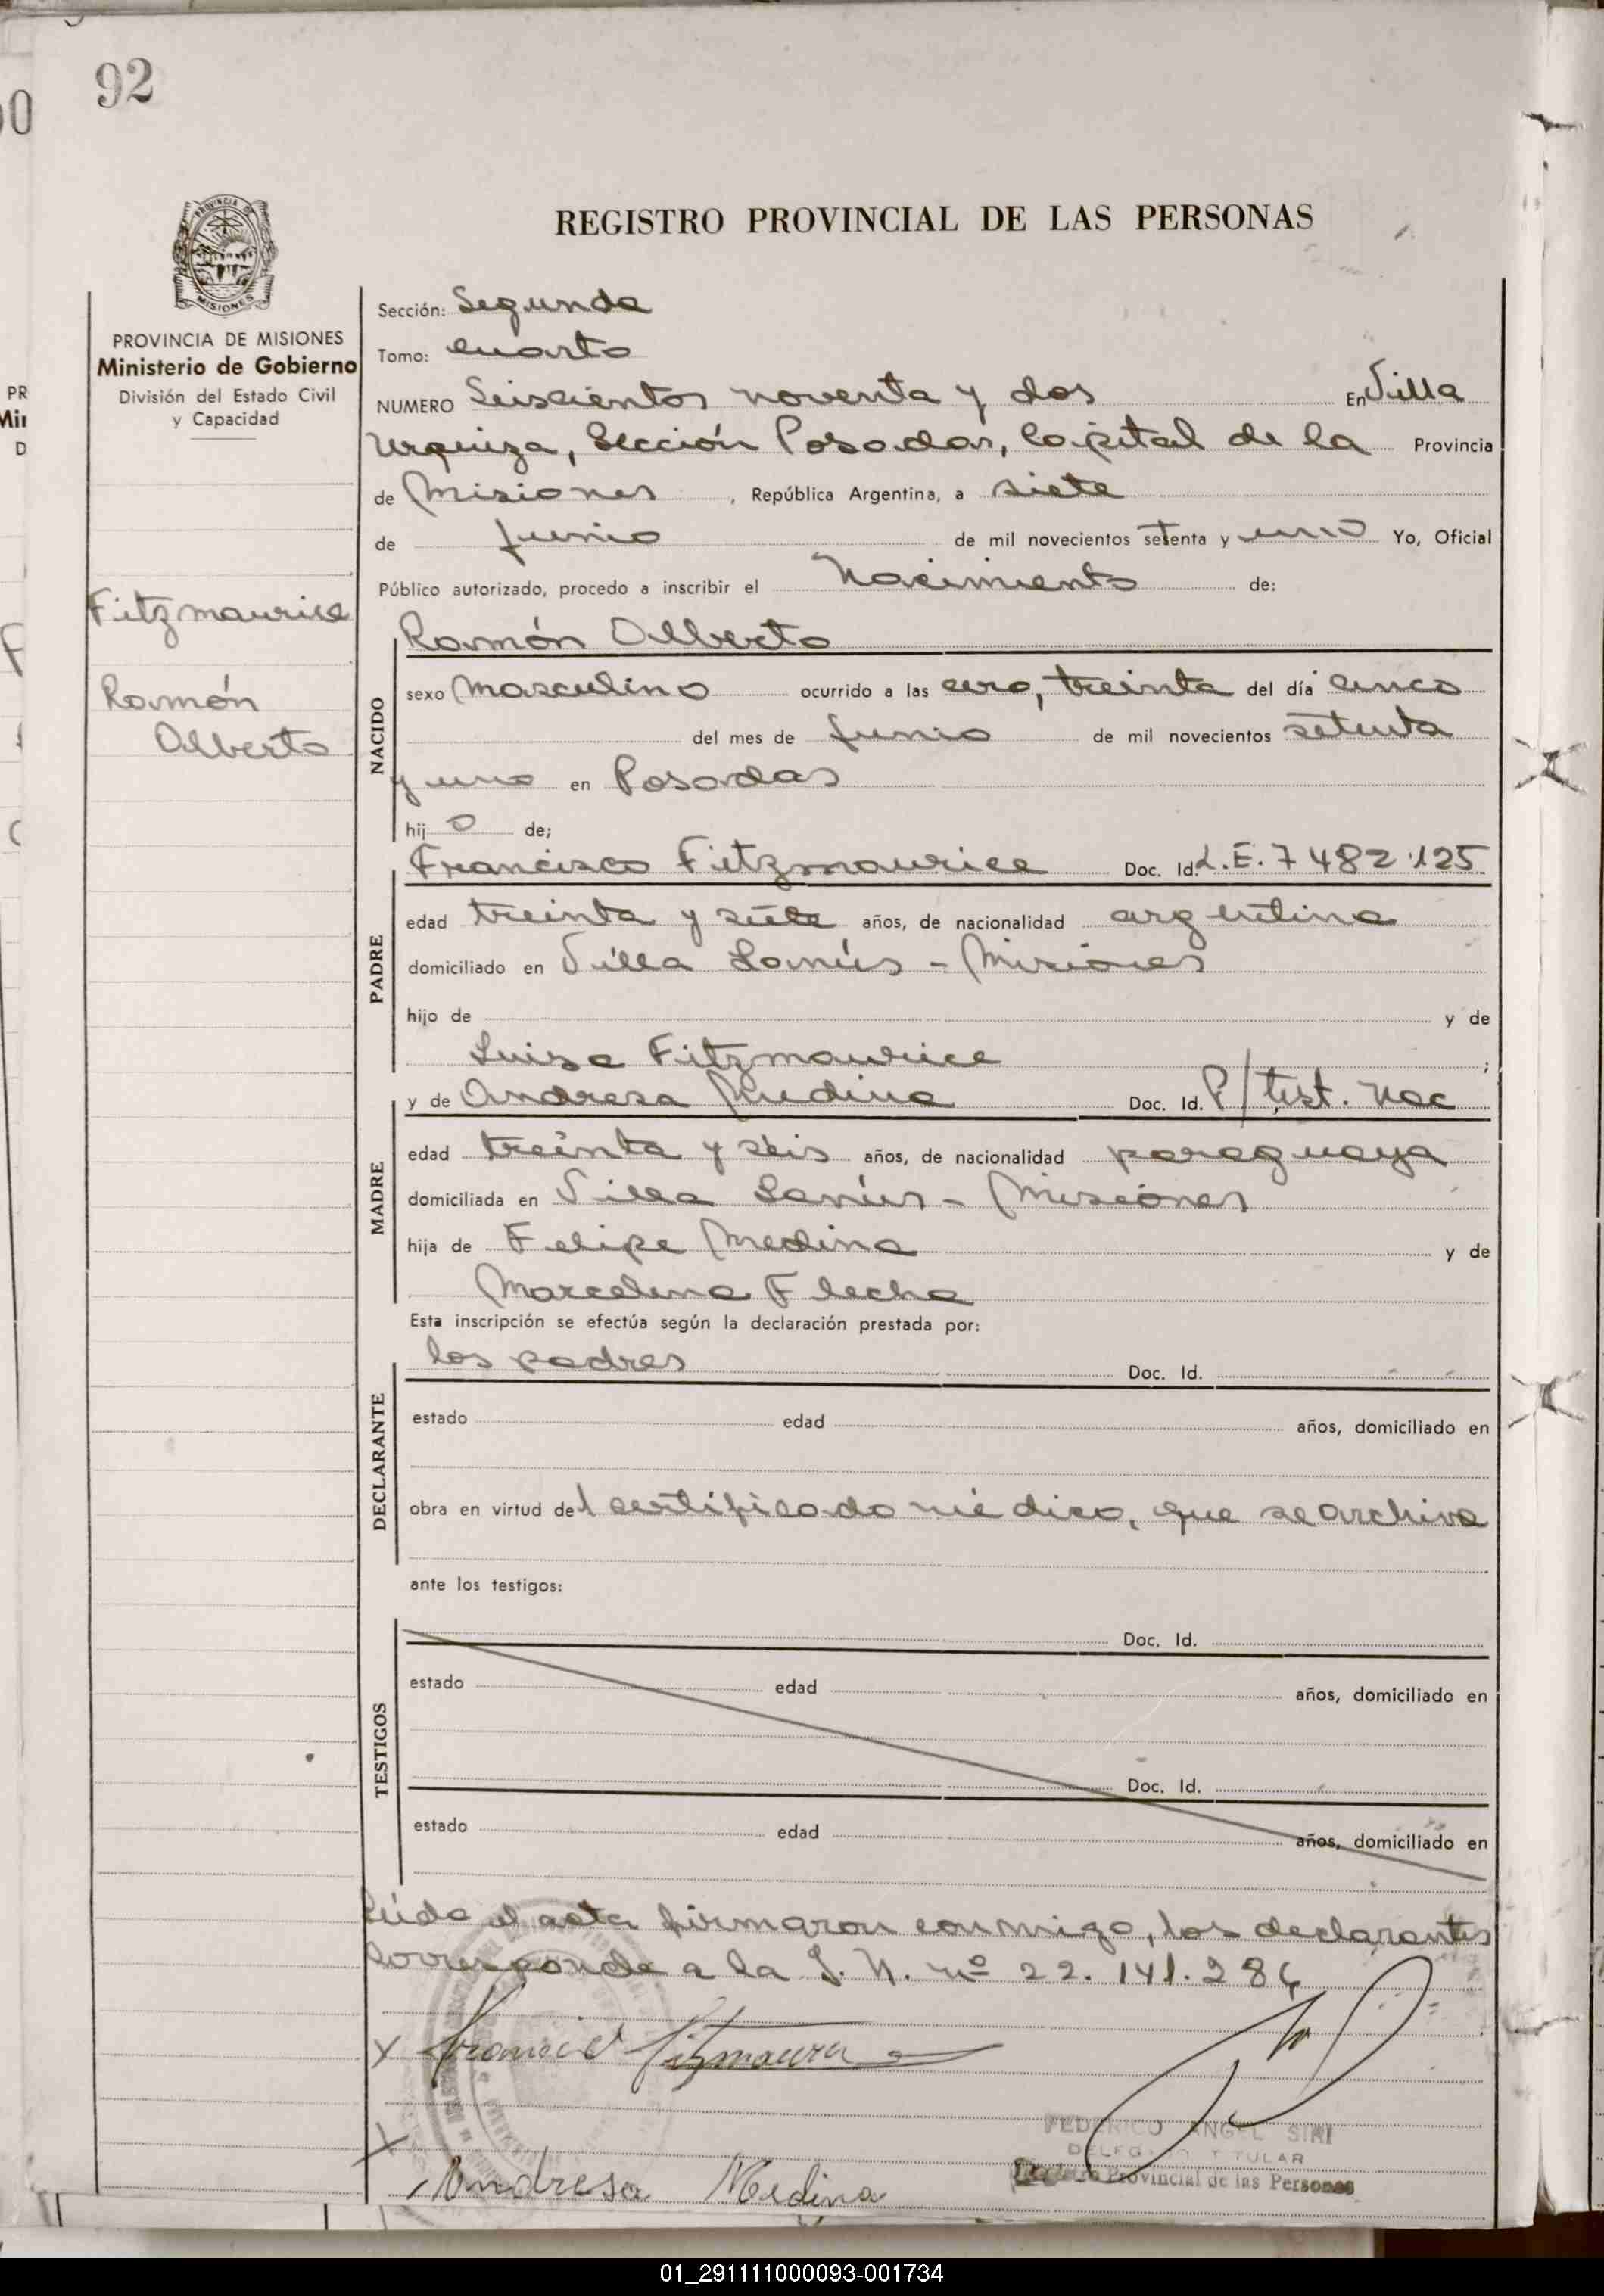 92
REGISTRO PROVINCIAL DE LAS PERSONAS
PROVINCIA DE MISIONES
Ministerio de Gobierno
División del Estado Civil
y Capacidad
Fitzmaurice
Ramón
Alberto
Sección: Segunda
Tomo: cuarto
NUMERO Seiscientos noventa y dos En Villa
Urquiza, Sección Posadas, Capital de la Provincia
de Misiones, República Argentina, a siete
de junio de mil novecientos setenta y uno Yo, Oficial
Público autorizado, procedo a inscribir el Nacimiento de:
Ramón Alberto
NACIDO
sexo masculino ocurrido a las cero, treinta del día cinco
del mes de junio de mil novecientos setenta
y uno en Posadas
hijo de;
Francisco Fitzmaurice Doc. Id. L.E. 7482.125
PADRE
edad treinta y siete años, de nacionalidad argentina
domiciliado en Villa Lanús - Misiones
hijo de y de
Luisa Fitzmaurice ;
y de Andresa Medina Doc. Id. P/test. nac
MADRE
edad treinta y seis años, de nacionalidad paraguaya
domiciliada en Villa Lanús - Misiones
hija de Felipe Medina y de
Marcelina Flecha
Esta inscripción se efectúa según la declaración prestada por:
los padres Doc. Id.
DECLARANTE
estado edad años, domiciliado en
obra en virtud del certificado médico, que se archiva
ante los testigos:
Doc. Id.
TESTIGOS
estado edad años, domiciliado en
Doc. Id.
estado edad años, domiciliado en
Leída el acta firmaron conmigo, los declarantes
Corresponde a la L. N. nº 22.141.286
x Francisco Fitzmaurice
x Andresa Medina
FEDERICO ANGEL SIRI
DELEGADO TITULAR
Registro Provincial de las Personas
01_291111000093-001734